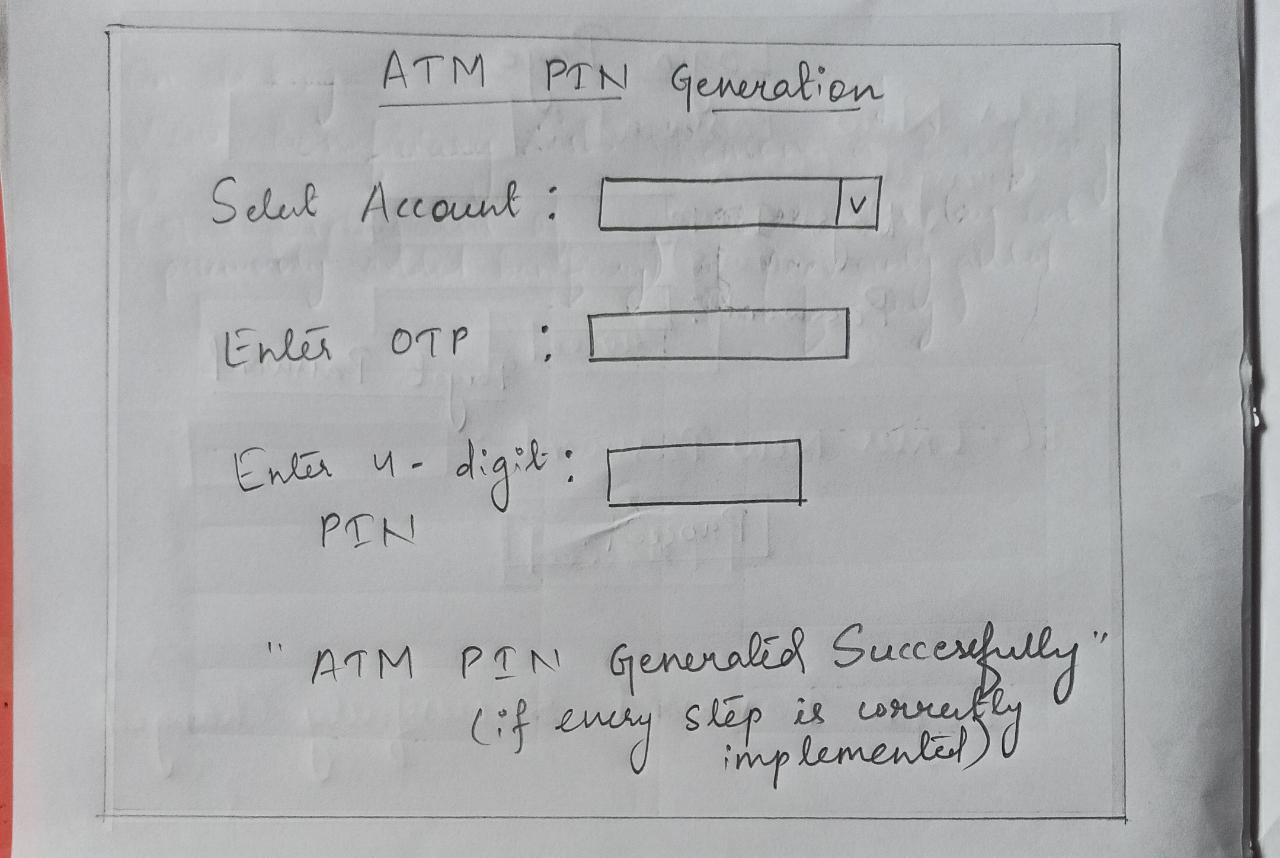 ATM PIN Generation
Select Account : V
Enter OTP :
Enter 4- digit :
PIN
" ATM PIN Generated Successfully "
(if every step is correctly
implemented)